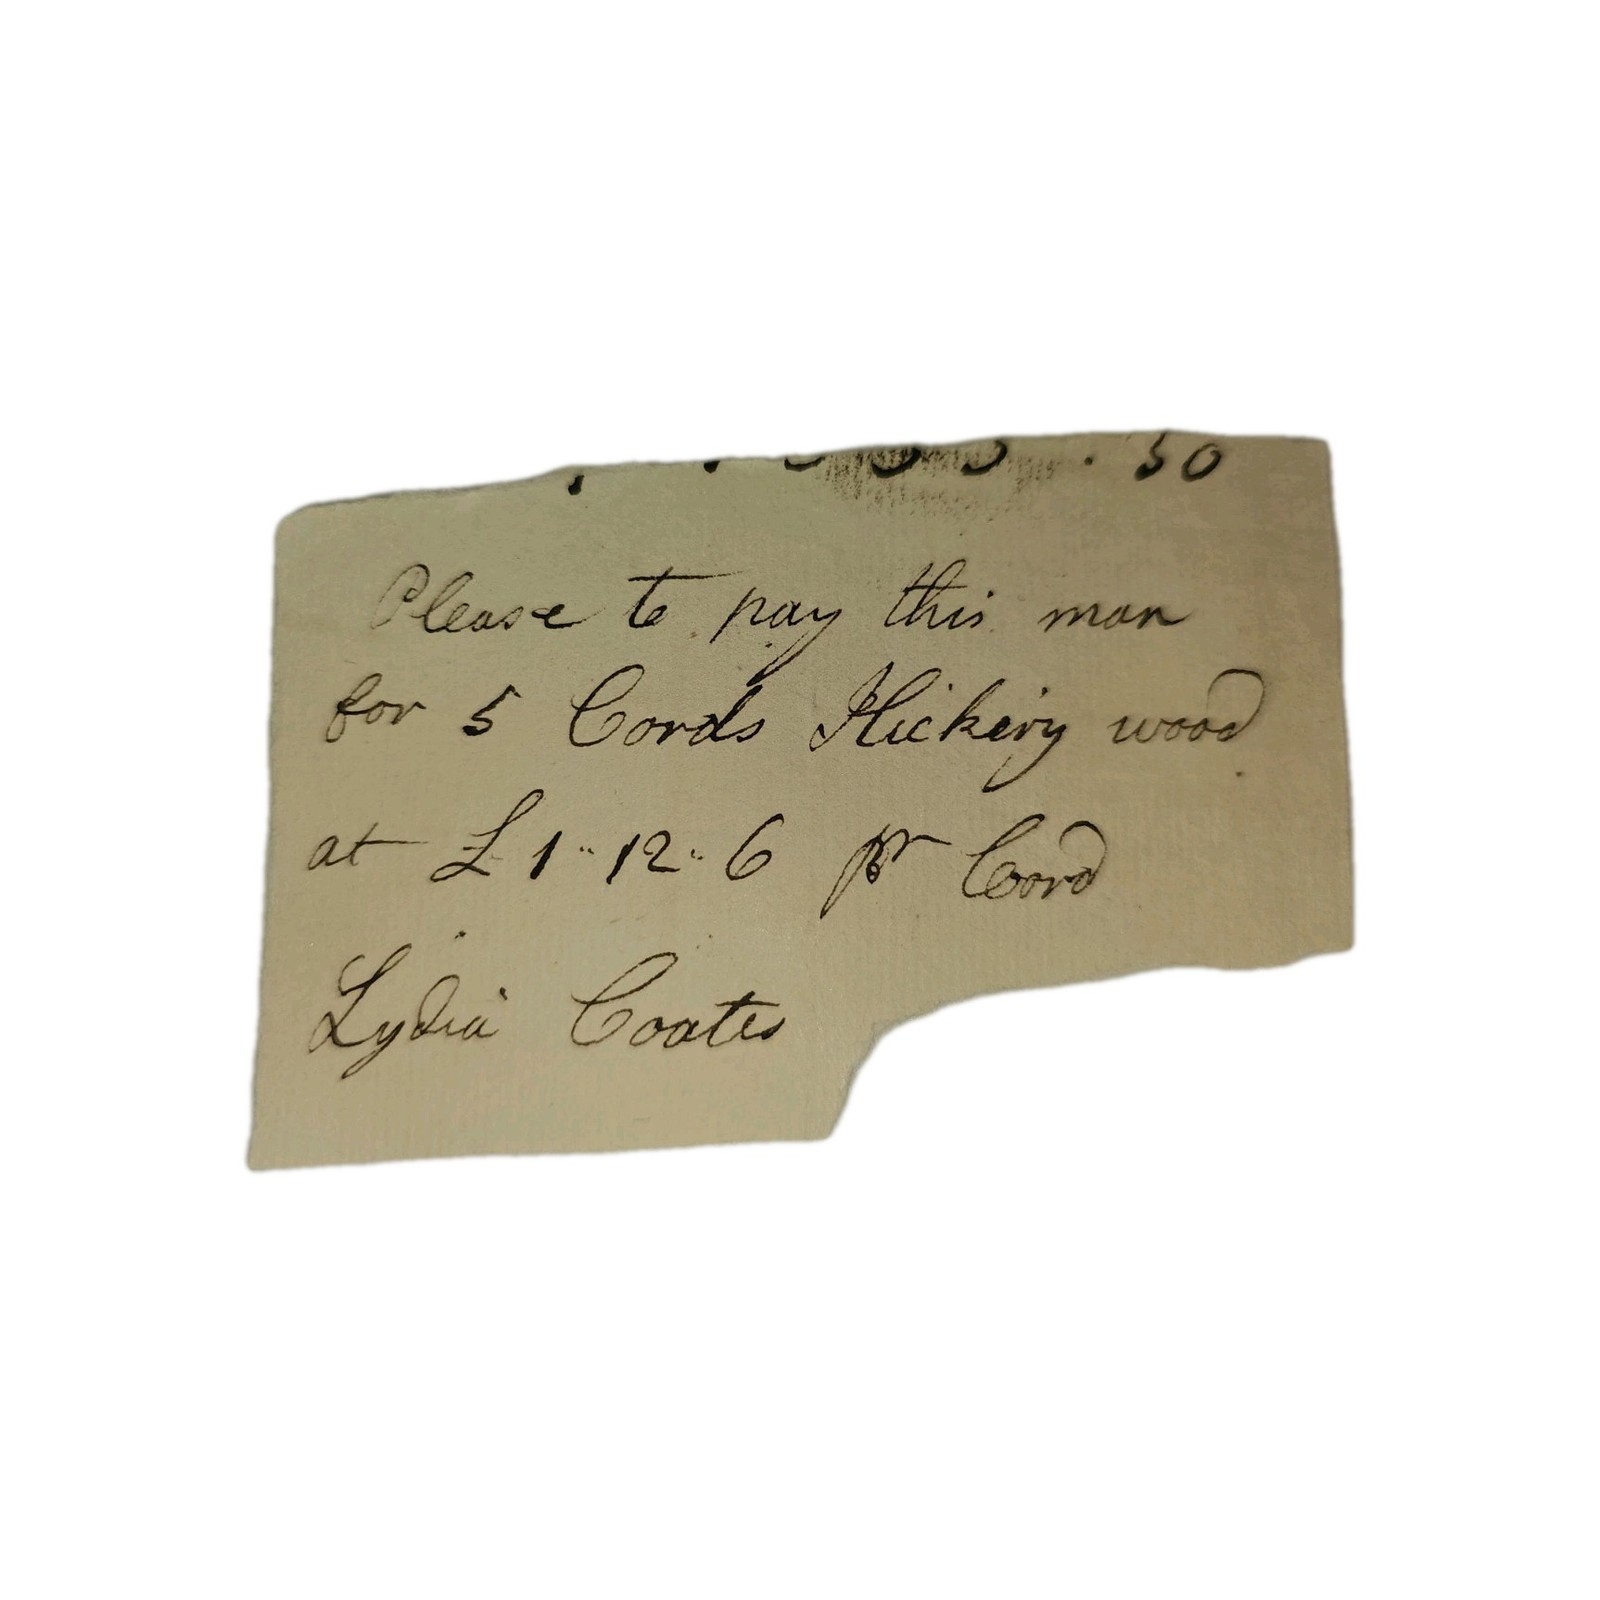 . 50
Please to pay this man
for 5 Cords Hickery wood
at £ 1" 12" 6 pr Cord
Lydia Coates